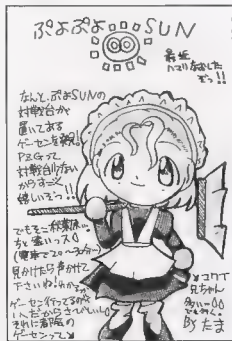 ぷよぷよSUN
最近
ハマりなおした
ぞっ!!
なんと、ぷよSUNの
対戦台が
置いてある
ゲーセンを発見!
って
対戦台少ない
からすごく
嬉しいぞっ!!
でもそこ秋葉原…
ちと遠いっス
見かけたら声かけて
下さいね。
ゲーセン行ってるの
1人だからさびしい
それに普段の
ゲーセンって
コワイ
兄ちゃん
多いー
By たま